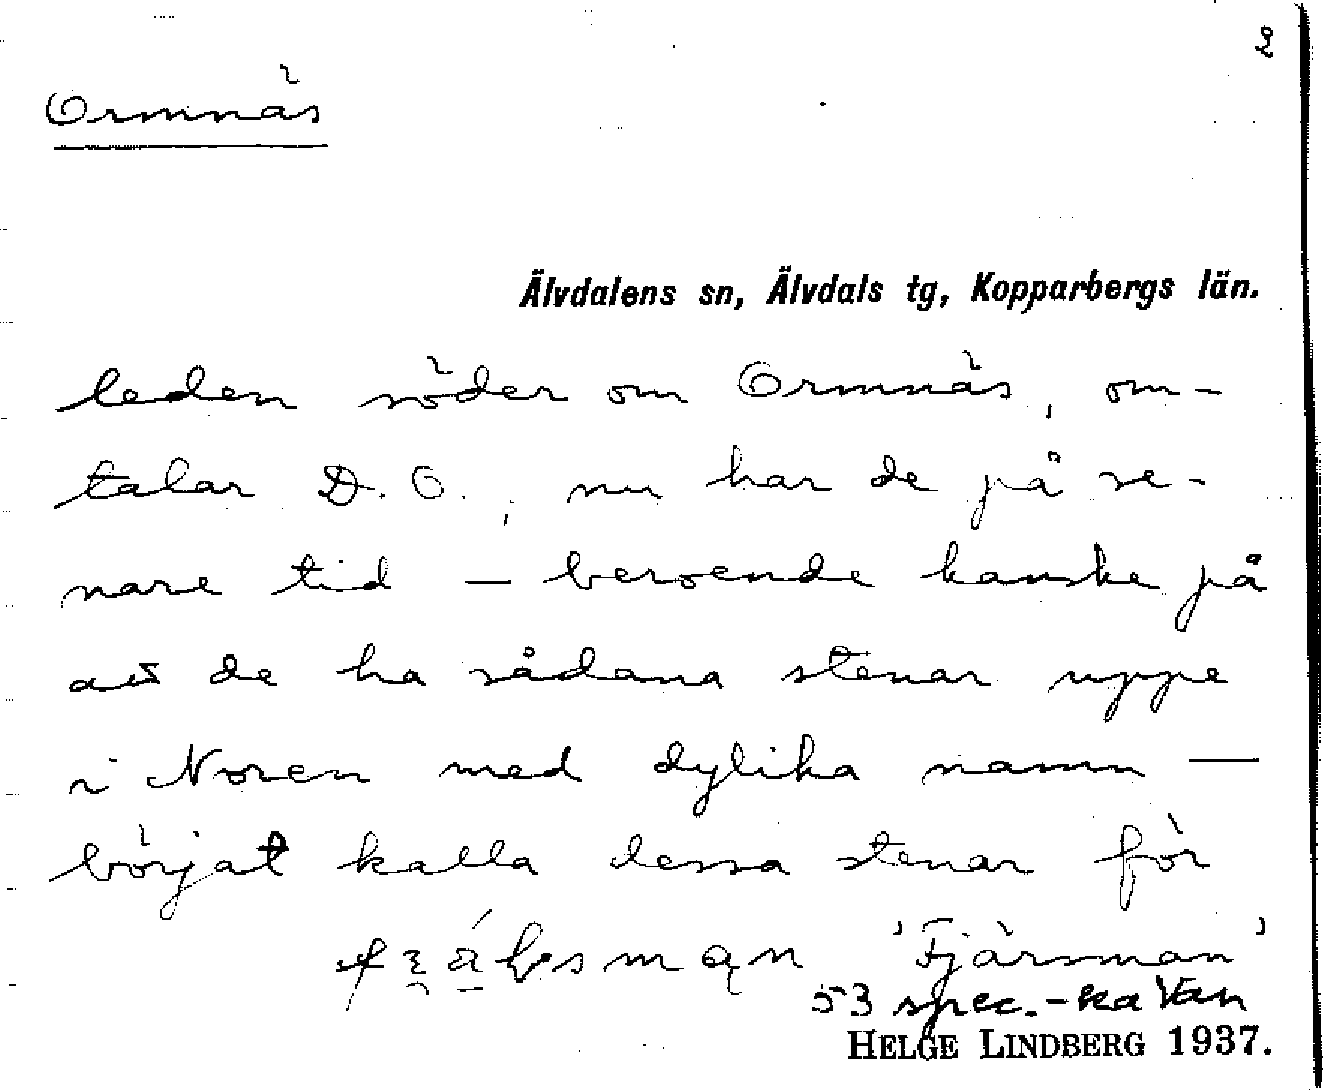 2
Ormnäs
Älvdalens sn, Älvdals tg, Kopparbergs län.
leden söder om Ormnäs, om-
talar D. O., nu har de på se-
nare tid — beroende kanske på
att de ha sådana stenar uppe
i Noren med dylika namn —
börjat kalla dessa stenar för
'Fjärsman'
53 spec.-
HELGE LINDBERG 1937.